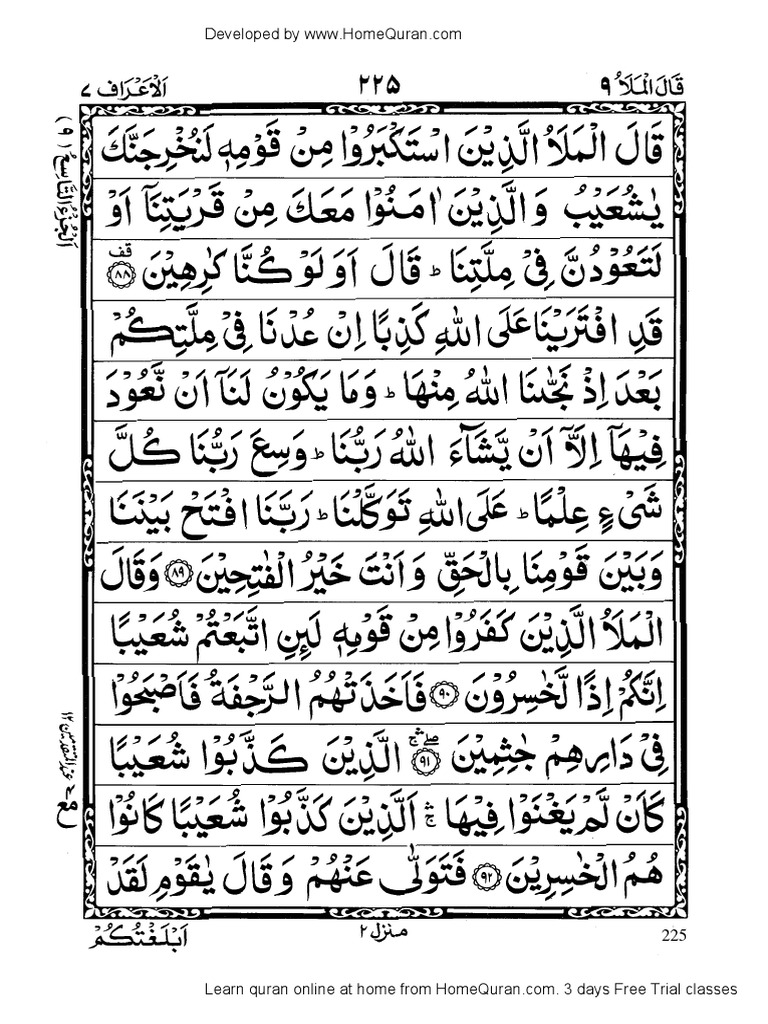 Developed by www.HomeQuran.com
قَالَ الۡمَلَاُ ۹ ۲۲۵ اَلۡاَعۡرَاف ۷
اَلۡجُزۡءُ التَّاسِعُ (۹)
قَالَ الۡمَلَاُ الَّذِيۡنَ اسۡتَكۡبَرُوۡا مِنۡ قَوۡمِهٖ لَنُخۡرِجَنَّكَ
يٰشُعَيۡبُ وَالَّذِيۡنَ اٰمَنُوۡا مَعَكَ مِنۡ قَرۡيَتِنَاۤ اَوۡ
لَتَعُوۡدُنَّ فِىۡ مِلَّتِنَا ؕ قَالَ اَوَلَوۡ كُنَّا كٰرِهِيۡنَ ﴿۸۸﴾ قف
قَدِ افۡتَرَيۡنَا عَلَى اللّٰهِ كَذِبًا اِنۡ عُدۡنَا فِىۡ مِلَّتِكُمۡ
بَعۡدَ اِذۡ نَجّٰٮنَا اللّٰهُ مِنۡهَا ؕ وَمَا يَكُوۡنُ لَنَاۤ اَنۡ نَّعُوۡدَ
فِيۡهَاۤ اِلَّاۤ اَنۡ يَّشَآءَ اللّٰهُ رَبُّنَا ؕ وَسِعَ رَبُّنَا كُلَّ
شَىۡءٍ عِلۡمًا ؕ عَلَى اللّٰهِ تَوَكَّلۡنَا ؕ رَبَّنَا افۡتَحۡ بَيۡنَنَا
وَبَيۡنَ قَوۡمِنَا بِالۡحَقِّ وَاَنۡتَ خَيۡرُ الۡفٰتِحِيۡنَ ﴿۸۹﴾ وَقَالَ
الۡمَلَاُ الَّذِيۡنَ كَفَرُوۡا مِنۡ قَوۡمِهٖ لَئِنِ اتَّبَعۡتُمۡ شُعَيۡبًا
اِنَّكُمۡ اِذًا لَّخٰسِرُوۡنَ ﴿۹۰﴾ فَاَخَذَتۡهُمُ الرَّجۡفَةُ فَاَصۡبَحُوۡا
فِىۡ دَارِهِمۡ جٰثِمِيۡنَ ﴿۹۱﴾ الَّذِيۡنَ كَذَّبُوۡا شُعَيۡبًا
كَاَنۡ لَّمۡ يَغۡنَوۡا فِيۡهَا ۚ اَلَّذِيۡنَ كَذَّبُوۡا شُعَيۡبًا كَانُوۡا
هُمُ الۡخٰسِرِيۡنَ ﴿۹۲﴾ فَتَوَلّٰى عَنۡهُمۡ وَقَالَ يٰقَوۡمِ لَقَدۡ
اَبۡلَغۡتُكُمۡ
منزل ۲
225
Learn quran online at home from HomeQuran.com. 3 days Free Trial classes